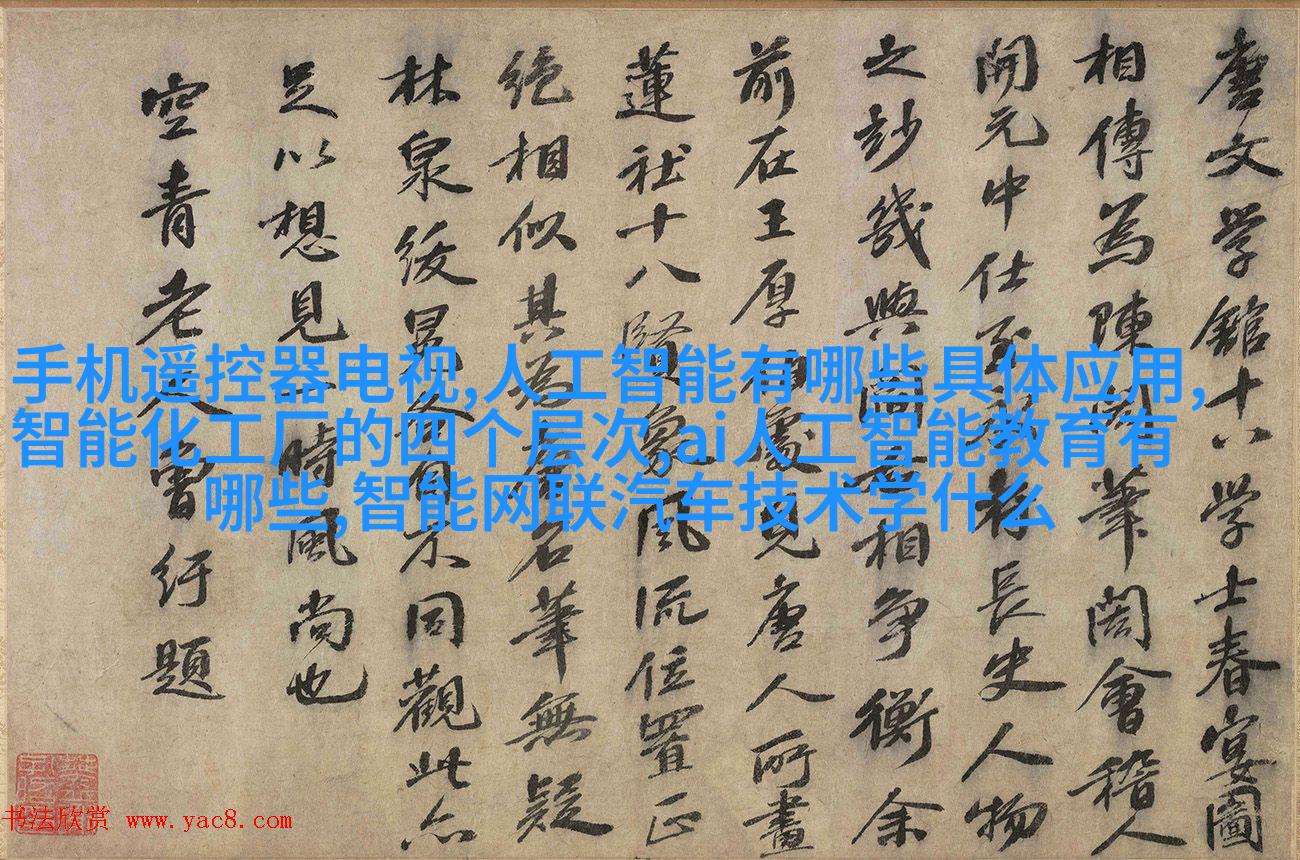 唐文学館十八学士春宴圖
相傳為陳閎筆閎會稽人
開元中仕至長史人物
之玅幾與相爭衡余
前在王厚伯處見唐人所畫
蓮社十八賢象風流位置正
絕相似其為唐名筆無疑
林泉綬冕各自不同觀此亦
足以想見一時風尚也
空青老人曾紆題
手机遥控器电视,人工智能有哪些具体应用,
智能化工厂的四个层次,ai人工智能教育有
哪些,智能网联汽车技术学什么
书法欣赏 www.yac8.com